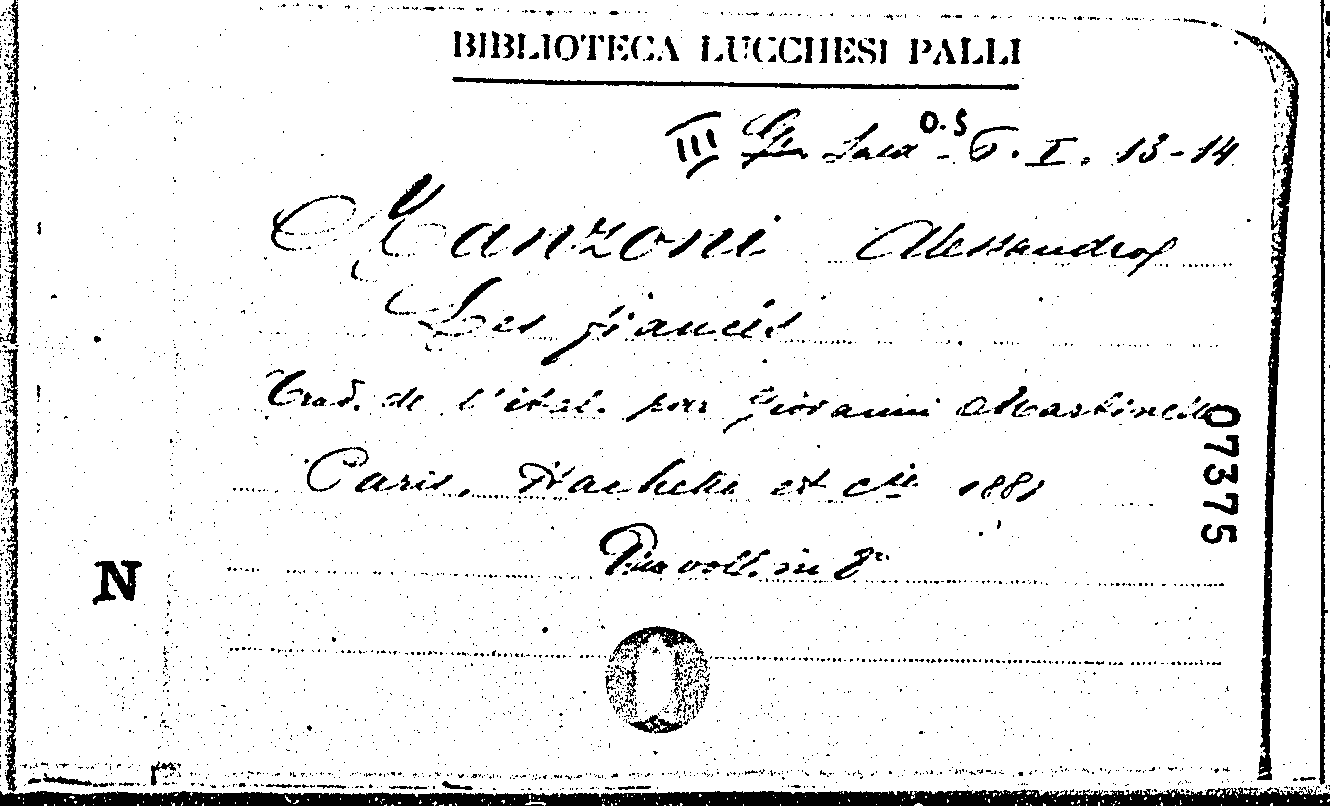 BIBLIOTECA LUCCHESI PALLI
III Gr. Sala O.S - 6. I. 13-14
Manzoni Alessandro
Les fiancés
Trad. de l'ital. par Giovanni Martinelli
07375
Paris, Hachette et Cie 1881
Due voll. in 8°
N